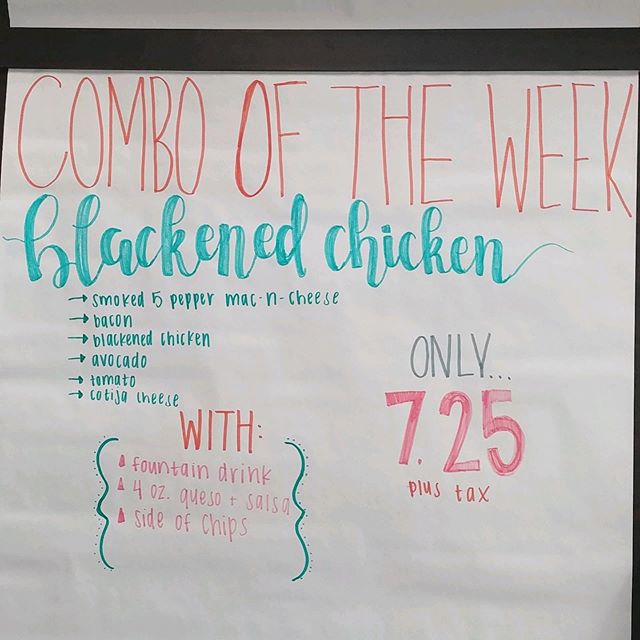 COMBO OF THE WEEK
blackened chicken
→ smoked 5 pepper mac-n-cheese
→ bacon
→ blackened chicken
→ avocado
→ tomato
→ cotija cheese
ONLY...
7.25
plus tax
WITH:
fountain drink
4 oz. queso + salsa
side of chips